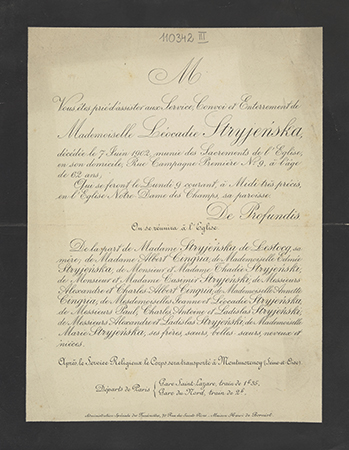 110342 III
M
Vous êtes prié d'assister aux Service, Convoi et Enterrement de
Mademoiselle Léocadie Stryjeńska,
décédée le 7 Juin 1902, munie des Sacrements de l'Eglise,
en son domicile, Rue Campagne Première N° 9, à l'âge
de 62 ans;
Qui se feront le Lundi 9 courant, à Midi très précis,
en l'Eglise Notre-Dame des Champs, sa paroisse.
De Profundis
On se réunira à l'Eglise
De la part de Madame Stryjeńska de Lestocq, sa
mère; de Madame Albert Cingria, de Mademoiselle
Stryjeńska, de Monsieur et Madame Stryjeński,
de Monsieur et Madame Casimir Stryjeński, de Messieurs
Alexandre et Charles Albert Cingria, de Mademoiselle Annette
Cingria, de Mesdemoiselles Jeanne et Léocadie Stryjeńska,
de Messieurs Paul, Charles Antoine et Ladislas Stryjeński,
de Messieurs Alexandre et Ladislas Stryjeński, de Mademoiselle
Marie Stryjeńska, ses frères, sœurs, belles-sœurs, neveux et
nièces.
Après le Service Religieux le Corps sera transporté à Montmorency (Seine-et-Oise)
Départs de Paris { Gare Saint-Lazare, train de 1h35.
Gare du Nord, train de 2h.